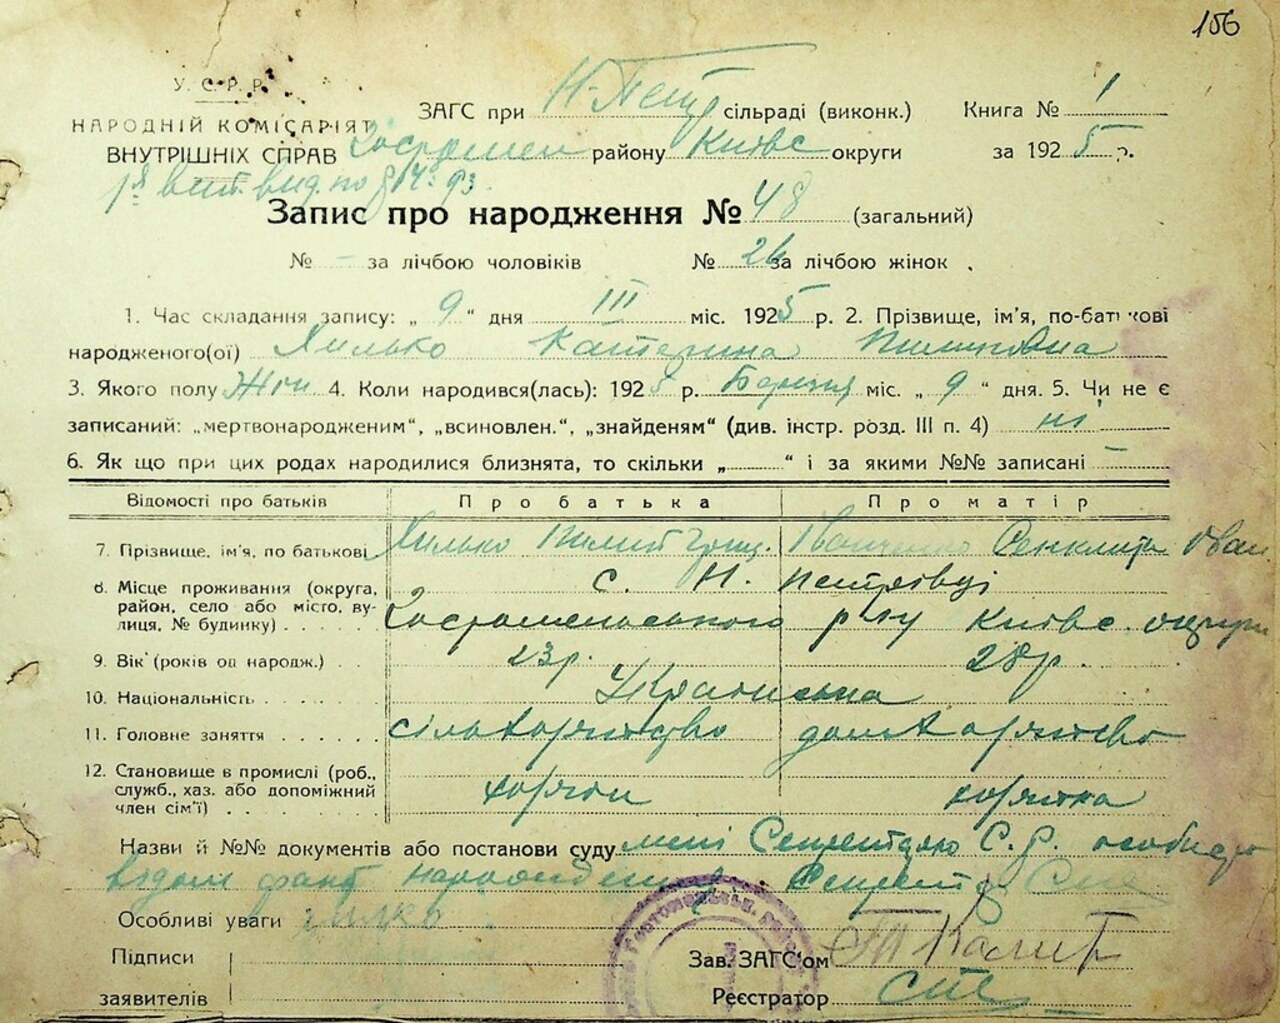 156
У. С. Р. Р.
НАРОДНІЙ КОМІСАРІЯТ
ВНУТРІШНІХ СПРАВ
ЗАГС при Н-Петр сільраді (виконк.) Книга № 1
району Київс округи за 1925 р.
Запис про народження № 48 (загальний)
№ - за лічбою чоловіків № 26 за лічбою жінок.
1. Час складання запису: „ 9 “ дня III міс. 1925 р. 2. Прізвище, ім'я, по-батькові
народженого(ої) Хилько Катерина Пилиповна
3. Якого полу Жін 4. Коли народився(лась): 1925 р. Березня міс. „ 9 “ дня. 5. Чи не є
записаний: „мертвонародженим“, „всиновлен.“, „знайденям“ (див. інстр. розд. III п. 4) ні
6. Як що при цих родах народилися близнята, то скільки „ “ і за якими №№ записані -
Відомості про батьків Про батька Про матір
7. Прізвище, ім'я, по батькові Хилько Пилип Іванченко Іван
8. Місце проживання (округа, район, село або місто, вулиця, № будинку) с. Н. Петрівці
р-ну Київс. округи
9. Вік (років од народж.) 23 р. 28 р.
10. Національність Українська
11. Головне заняття
12. Становище в промислі (роб., служб., хаз. або допоміжний член сім'ї)
Назви й №№ документів або постанови суду мені Секретарю С. Р. особисто
відом факт народження Секретар
Особливі уваги Хилко
Підписи
заявителів
Зав. ЗАГС'ом
Реєстратор